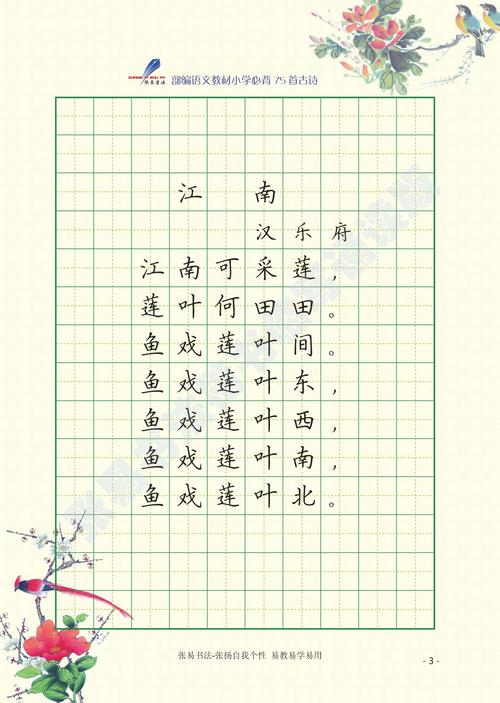 部编语文教材小学必背75首古诗
张易书法
江南
汉乐府
江南可采莲，
莲叶何田田。
鱼戏莲叶间。
鱼戏莲叶东，
鱼戏莲叶西，
鱼戏莲叶南，
鱼戏莲叶北。
张易书法-张扬自我个性 易教易学易用
- 3 -